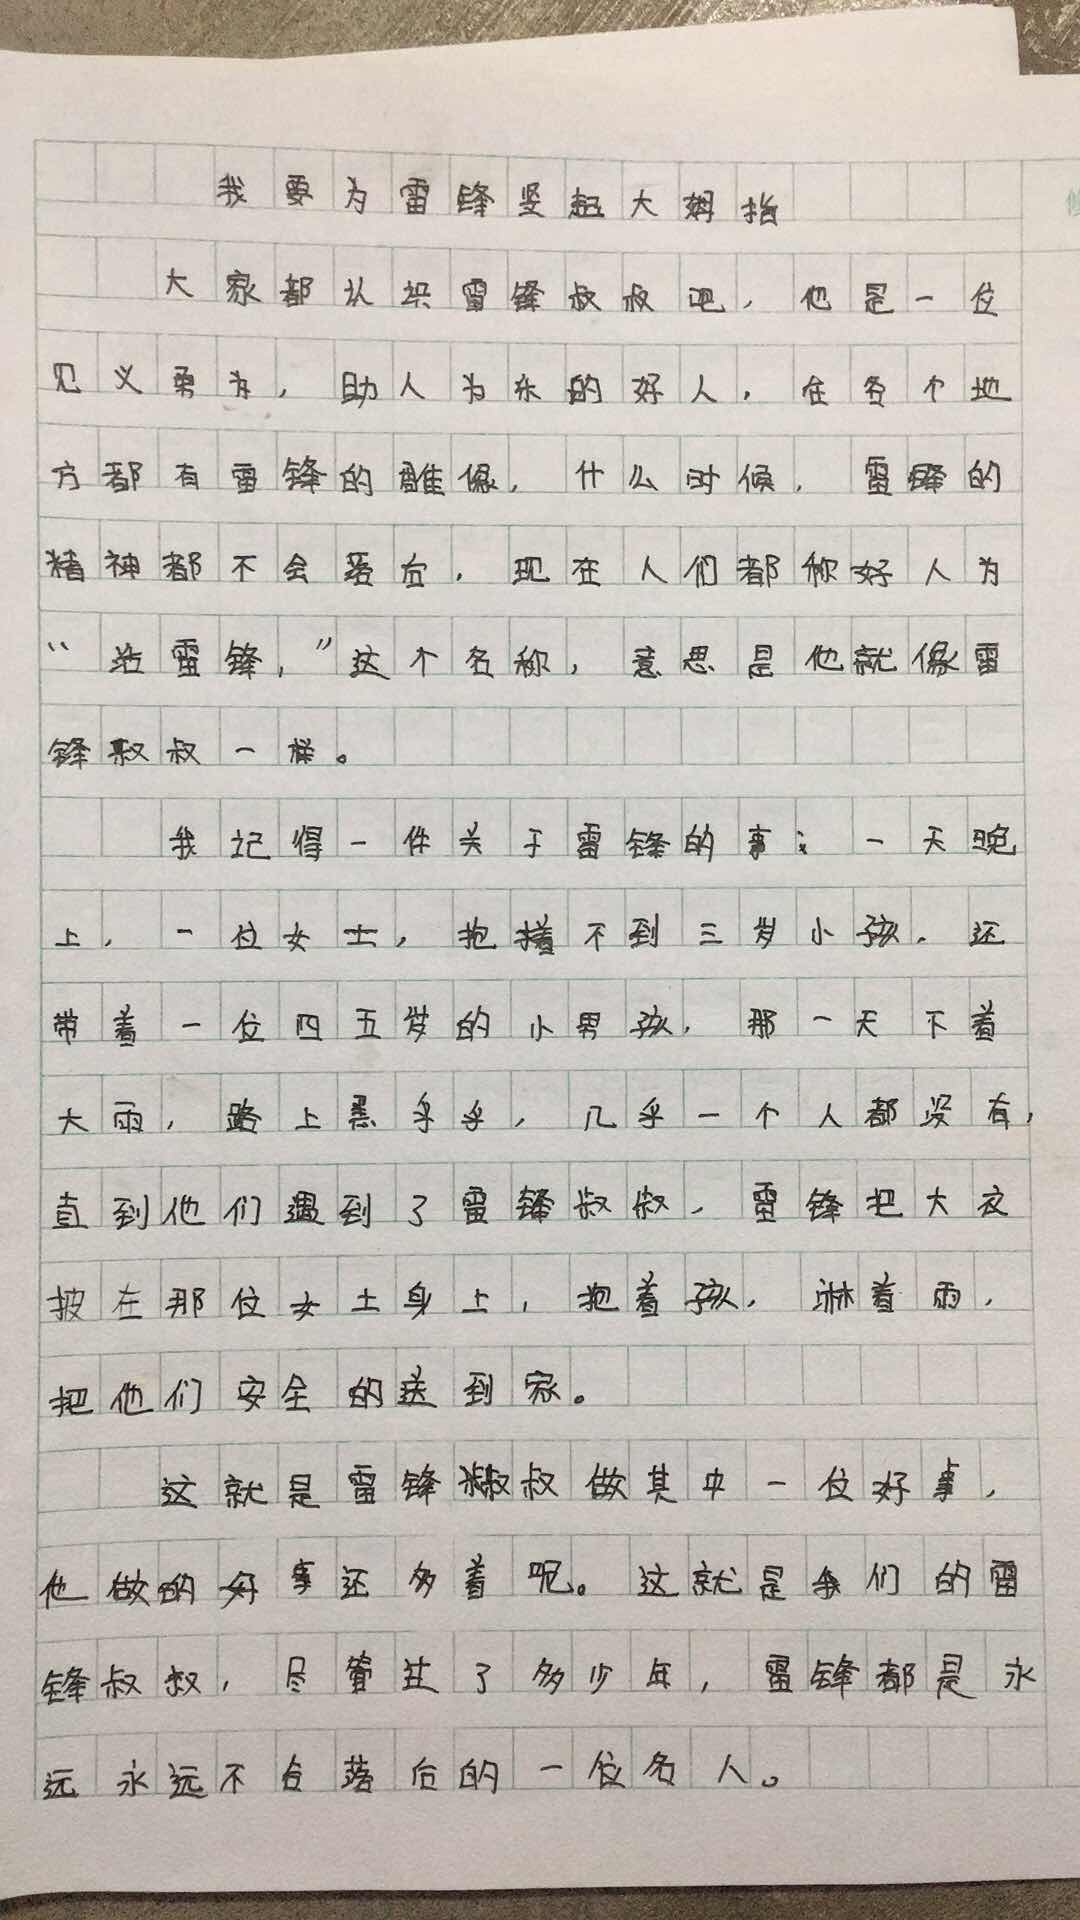 我要为雷锋竖起大姆指
大家都认识雷锋叔叔吧，他是一位
见义勇为，助人为乐的好人，在各个地
方都有雷锋的雕像，什么时候，雷锋的
精神都不会落后，现在人们都称好人为
“活雷锋，”这个名称，意思是他就像雷
锋叔叔一样。
我记得一件关于雷锋的事：一天晚
上，一位女士，抱着不到三岁小孩，还
带着一位四五岁的小男孩，那一天下着
大雨，路上黑乎乎，几乎一个人都没有，
直到他们遇到了雷锋叔叔，雷锋把大衣
披在那位女士身上，抱着孩，淋着雨，
把他们安全的送到家。
这就是雷锋叔叔做其中一位好事，
他做的好事还多着呢。这就是我们的雷
锋叔叔，尽管过了多少年，雷锋都是永
远永远不会落后的一位名人。